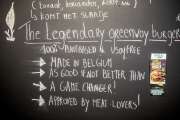 (tomaat, komkommer,
↳ KOMT MET SLAATJE
The Legendary greenway burger
100% PLANTBASED & SOJA FREE
→ MADE IN BELGIUM
→ AS GOOD IF NOT BETTER THAN
→ A GAME CHANGER!
→ APPROVED BY MEAT LOVERS!